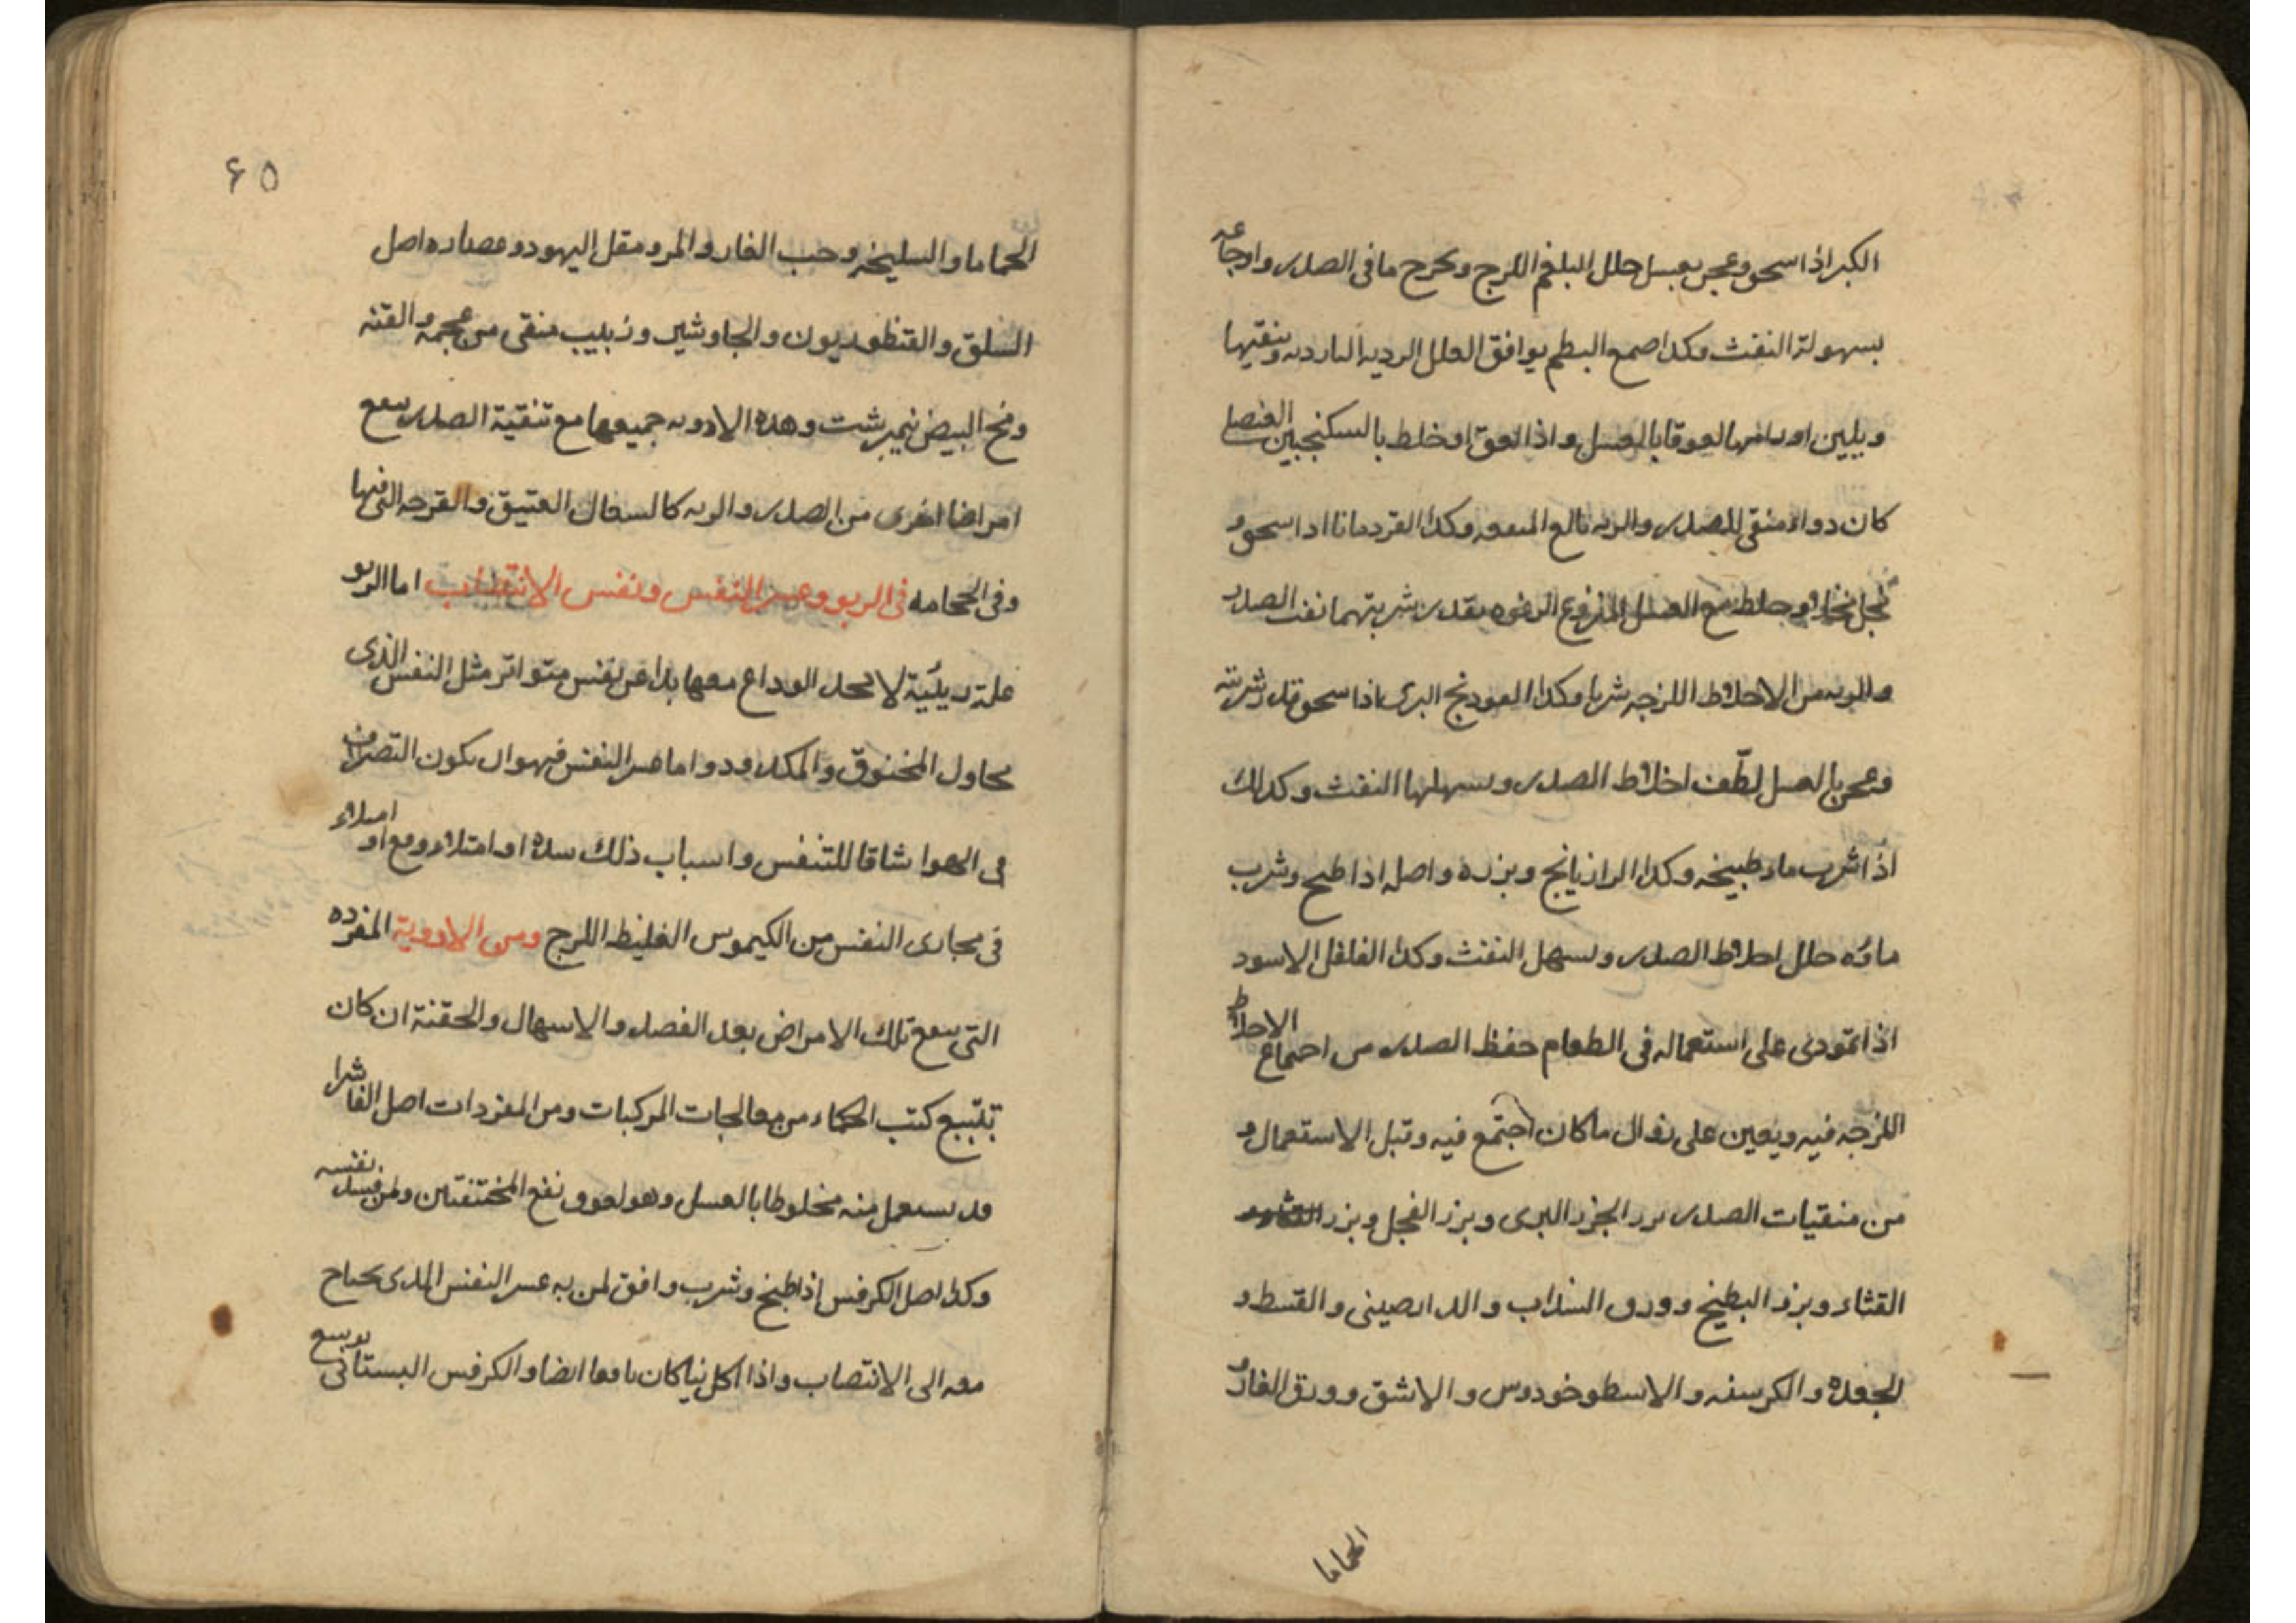 الكبر اذا سحق وعجن بعسل حلل البلغم اللزج وىحرح ما فى الصدر واوجاعه
بسهولة النفث وكذا صمغ البطم يوافق العلل الرديه البارده وينقيها
ويلين اورامها لعوقا بالعسل واذا لعق او خلط بالسكنجبين العنصلى
كان دواء منقى للصدر والريه بالغ المنفعه وكذا القردمانا اذا سحق و
نخل وخلط مع العسل المنزوع الرغوه بقدر شربتهما نفث الصدر
والريه من الاخلاط اللزجه شربا وكذا الفودنج البرى اذا سحق قدر شربته
وعجن بالعسل لطّف اخلاط الصدر وىسهلها النفث وكذلك
اذا شرب ماء طبيخه وكذا الرازيانج وبزره واصله اذا طبخ وشرب
ماؤه حلل اخلاط الصدر ولسهل النفث وكذا الفلفل الاسود
اذا تمودى على استعماله فى الطعام حفظ الصدر من اجتماع الاخلاط
اللزجه فيه ويعين على زوال ما كان اجتمع فيه وقبل الاستعمال و
من منقيات الصدر بزر الجزر البرى وبزر الفجل وبزر
القثاء وبزر البطيخ وورق السذاب والدارصينى والقسط و
الجعده والكرسنه والاسطوخودوس والاشق وورق الغار و
الحماما
٦٥
الحماما والسليخه وحب الغار والمر ومقل اليهود وعصاره اصل
السلق والقنطوريون والجاوشير وزبيب منقى من عجمه والقنه
ومح البيض نيمبرشت وهذه الادويه جميعها مع تنقية الصدر ينفع
امراضا اخرى من الصدر والريه كالسعال العتيق والقرحه التى فيها
وفى الحجامه فى الربو وعسر النفس ونفس الانتصاب اما الربو
علة ريئية لا يجد الوداع معها بدا من نفس متواتر مثل النفس الذى
يحاول المخنوق والمكدود واما عسر النفس فهو ان يكون التصرف
فى الهوا شاقا للتنفس واسباب ذلك سدة او امتلاء ومع او امتلاء
فى مجارى النفس من الكيموس الغليظ اللزج ومن الادوية المفرده
التى ينفع تلك الامراض بعد الفصد والاسهال والحقنة ان كان
بتتبيع كتب الحكماء من معالجات المركبات ومن المفردات اصل الفاشرا
قد يستعمل منه مخلوطا بالعسل وهو لعوق نفع المختنقين ولمن فسد نفسه
وكذا اصل الكرفس اذا طبخ وشرب وافق لمن به عسر النفس الذى يحتاج
معه الى الانتصاب واذا اكل نيا كان نافعا ايضا والكرفس البستانى يوسع